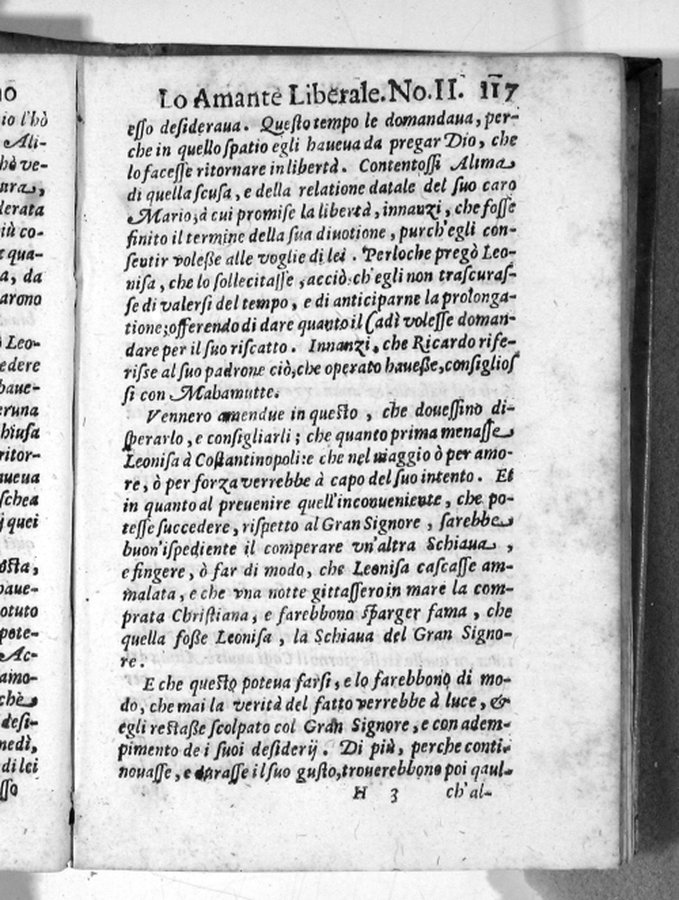 Lo Amante Liberale. No. II. 117
esso desideraua. Questo tempo le domandaua, per-
che in quello spatio egli haueua da pregar Dio, che
lo facesse ritornare in libertà. Contentossi Alima
di quella scusa, e della relatione datale del suo caro
Mario; à cui promise la libertà, innanzi, che fosse
finito il termine della sua diuotione, purch'egli con-
sentir volesse alle voglie di lei. Perloche pregò Leo-
nisa, che lo sollecitasse, acciò; ch'egli non trascuras-
se di valersi del tempo, e di anticiparne la prolonga-
tione; offerendo di dare quanto il Cadì volesse doman-
dare per il suo riscatto. Innanzi, che Ricardo rife-
risse al suo padrone ciò, che operato hauesse, consiglios
si con Mahamutte.
Vennero amendue in questo, che douessino di-
sperarlo, e consigliarli; che quanto prima menasse
Leonisa à Costantinopoli: e che nel viaggio ò per amo-
re, ò per forza verrebbe à capo del suo intento. Et
in quanto al preuenire quell'inconueniente, che po-
tesse succedere, rispetto al Gran Signore, sarebbe
buon'ispediente il comperare vn'altra Schiaua,
e fingere, ò far di modo, che Leonisa cascasse am-
malata, e che vna notte gittassero in mare la com-
prata Christiana, e farebbono sparger fama, che
quella fosse Leonisa, la Schiaua del Gran Signo-
re.
E che questo poteua farsi, e lo farebbono di mo-
do, che mai la verità del fatto verrebbe à luce, &
egli restasse scolpato col Gran Signore, e con adem-
pimento de i suoi desiderij. Di più, perche conti-
nouasse, e durasse il suo gusto, trouerebbono poi qaul-
H 3 ch'al-